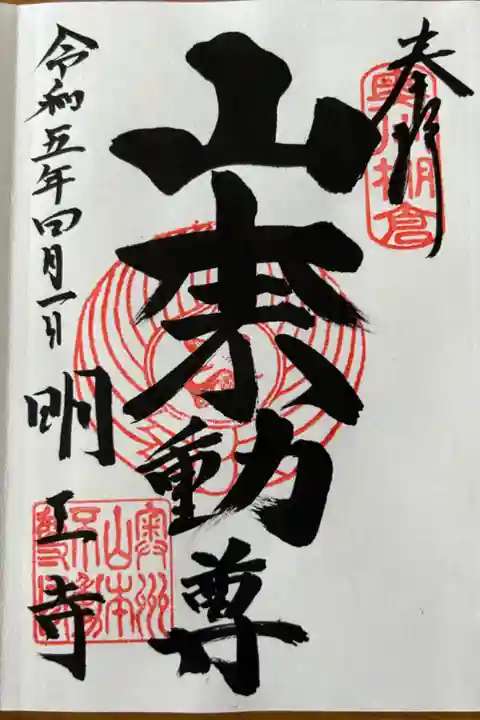 奉拝
奥州棚倉
山本不動尊
奥州
山本
不動
令和五年四月一日
明王寺